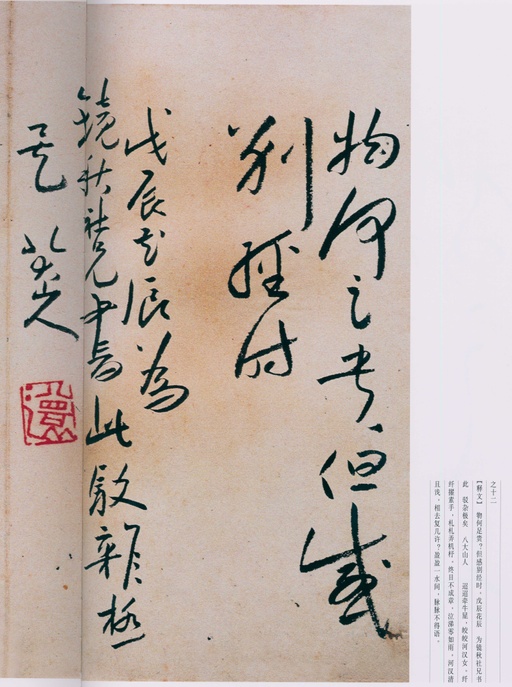 物何足貴但感
別經時
戊辰花辰為
鏡秋社兄書此駁雜極
矣 八大山人
之十二
【释文】 物何足贵?但感别经时。戊辰花辰 为镜秋社兄书
此 驳杂极矣 八大山人 迢迢牵牛星,皎皎河汉女。纤
纤擢素手,札札弄机杼。终日不成章,泣涕零如雨。河汉清
且浅,相去复几许?盈盈一水间,脉脉不得语。